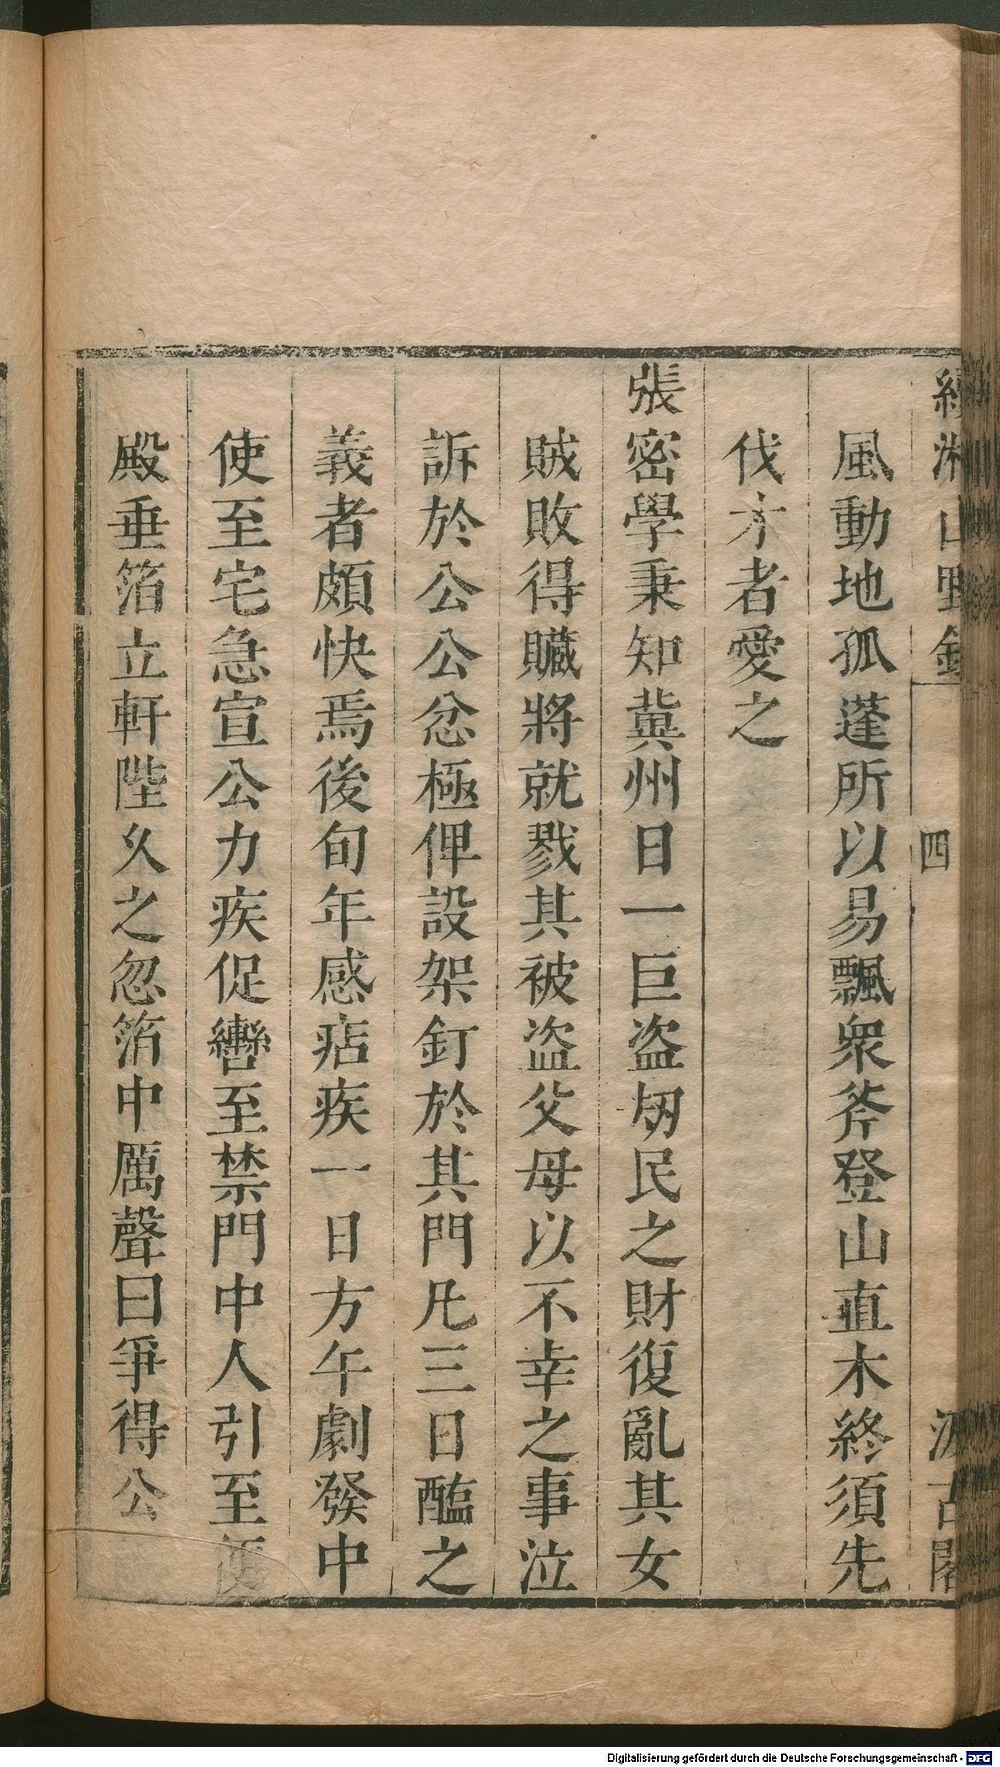 續湘山野錄 四 汲古閣
風動地孤蓬所以易飄衆斧登山直木終須先
伐才者愛之
張密學秉知冀州日一巨盗刼民之財復亂其女
賊敗得贓將就戮其被盗父母以不幸之事泣
訴於公公忿極俾設架釘於其門凡三日醢之
義者頗快焉後旬年感痁疾一日方午劇發中
使至宅急宣公力疾促轡至禁門中人引至便
殿垂箔立軒陛久之忽箔中厲聲曰爭得公
Digitalisierung gefördert durch die Deutsche Forschungsgemeinschaft - DFG